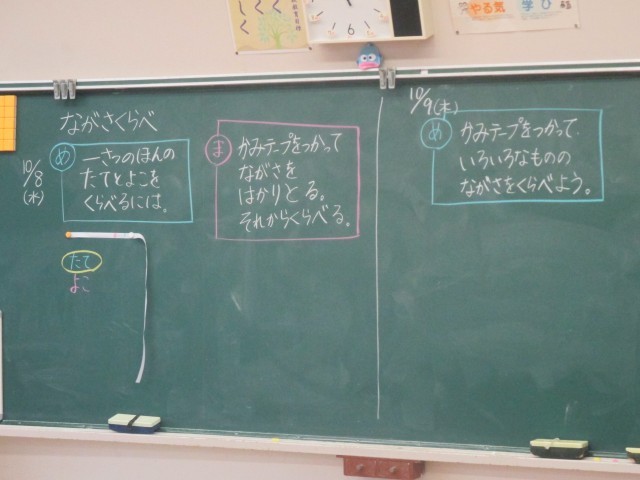 しくく
やる気
学び
ながさくらべ
10/8
(水)
め
一さつのほんの
たてとよこを
くらべるには。
ま
かみテープをつかって
ながさを
はかりとる。
それからくらべる。
たて
よこ
10/9(木)
め
かみテープをつかって
いろいろなものの
ながさをくらべよう。